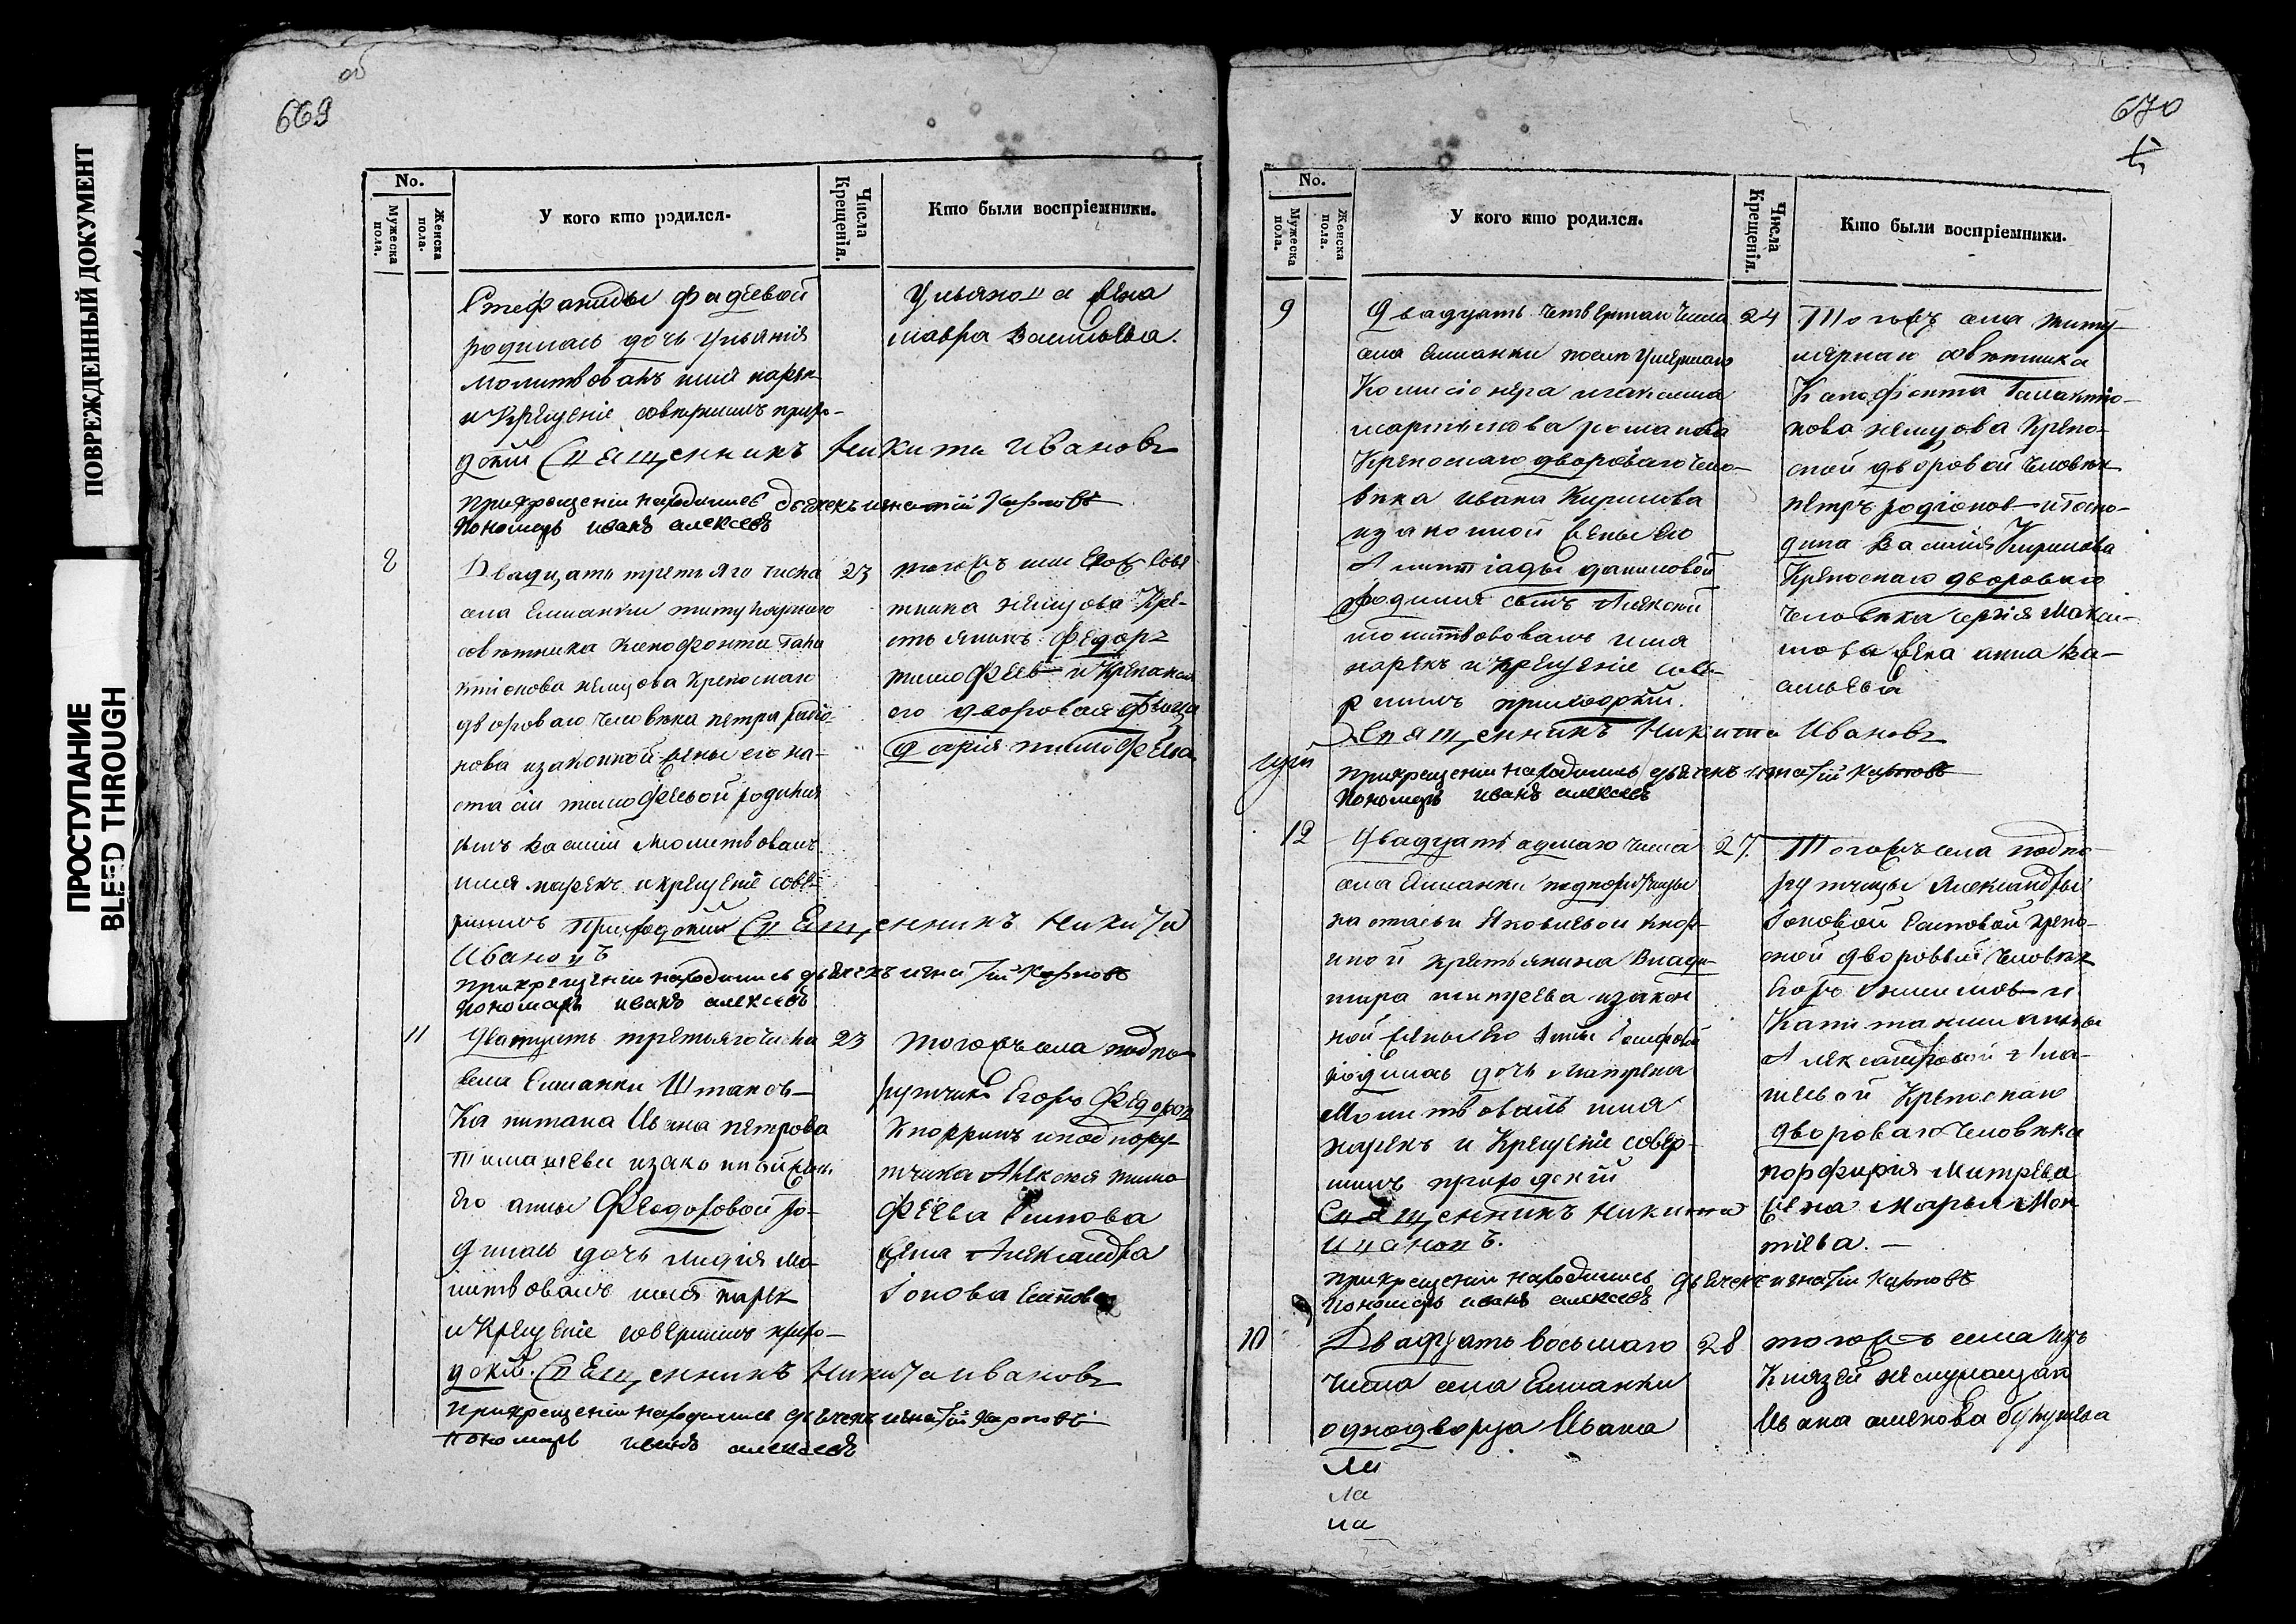 ПОВРЕЖДЕННЫЙ ДОКУМЕНТ
ПРОСТУПАНИЕ
BLEED THROUGH
об
669
No.
Мужеска пола.
Женска пола.
У кого кто родился.
Числа Крещенія.
Кто были воспріемники.
Стефаниды Фадѣевой
родилась дочь Ульянія
молитвовалъ имя нарек
и Крещеніе совершилъ прихо-
дскій Священникъ Никита Ивановъ
при крещеніи находились дьячекъ игнатій Карповъ
Пономарь иванъ алексеевъ
жена
мавра Васильева.
8
Двадцать третьяго числа
села Елшанки титулярнаго
совѣтника Ксенофонта Гала
ктіонова немцова крепоснаго
двороваго человѣка петра радіо-
нова изаконной жены его на-
стасіи тимофеевой родился
сынъ василій Молитвовалъ
имя нарекъ и крещеніе сове-
ршилъ приходскій Священникъ Никита
Ивановъ
при крещеніи находились дьячекъ игнатій Карповъ
пономарь иванъ алексеевъ
23
немцова кре-
стьянинъ федоръ
тимофеев и крепосная
его дворовая девица
дарія тимофеева
11
Дватцать третьяго числа
села Елшанки Штапсъ-
Капитана Ивана петрова
изаконной жены
его анны Феодоровой ро-
дилась дочь лидія мо-
литвовалъ имя нарек
и Крещеніе совершилъ прихо-
дскій Священникъ Никита ивановъ
при крещеніи находились дьячекъ игнатій Карповъ
Пономарь иванъ алексеевъ
23
тогожъ села подпо-
ручикъ Егоръ Федоров
Кноррингъ и подпору
тчика Алексея тимо
феева Есипова
жена Александра
Іонова Есипова
670
No.
Мужеска пола.
Женска пола.
У кого кто родился.
Числа Крещенія.
Кто были воспріемники.
9
Двадцать четвертаго числа
села Елшанки после умершаго
Комисіонера максима
мартынова романова
Крепоснаго двороваго чело-
вѣка ивана Кирилова
изаконной жены его
даниловой
родился сынъ Алексей
молитвововалъ имя
нарекъ и крещеніе сове-
ршилъ приходскій.
Священникъ Никита Ивановъ
при крещеніи находились дьячекъ игнатій карповъ
пономарь иванъ алексеевъ
24
Тогожъ села титу-
лярнаго совѣтника
Ксенофонта Галактіо-
нова немцова Крепо-
сной дворовой человѣк
петръ родіонов и госпо-
дина Василія Кирилова
Крепоснаго двороваго
человѣка сергія Макси-
мова жена анна Ва-
сильева
12
Двадцать седмаго числа
села Елшанки подпоручицы
настасьи Яковлевой кнор-
иной крестьянина Влади-
мира изакон
ной жены его
родилась дочь Матрена
Молитвовалъ имя
нарекъ и Крещеніе совер-
шилъ приходскій
Священникъ Никита
Ивановъ.
при крещеніи находились дьячекъ игнатій Карповъ
Пономарь иванъ алексеевъ
27.
Тогожъ села подпо-
рутчицы Александры
Іоновой Есиповой крепо-
сной дворовый человѣк
Капитанши анны
Александровой
Крепоснаго
двороваго человѣка
порфирія Митрева
жена Марья
10
Двадцать восьмаго
числа села Елшанки
однодворца Ивана
28
тогожъ села изъ
Князей
Ивана
ли
ла
ла